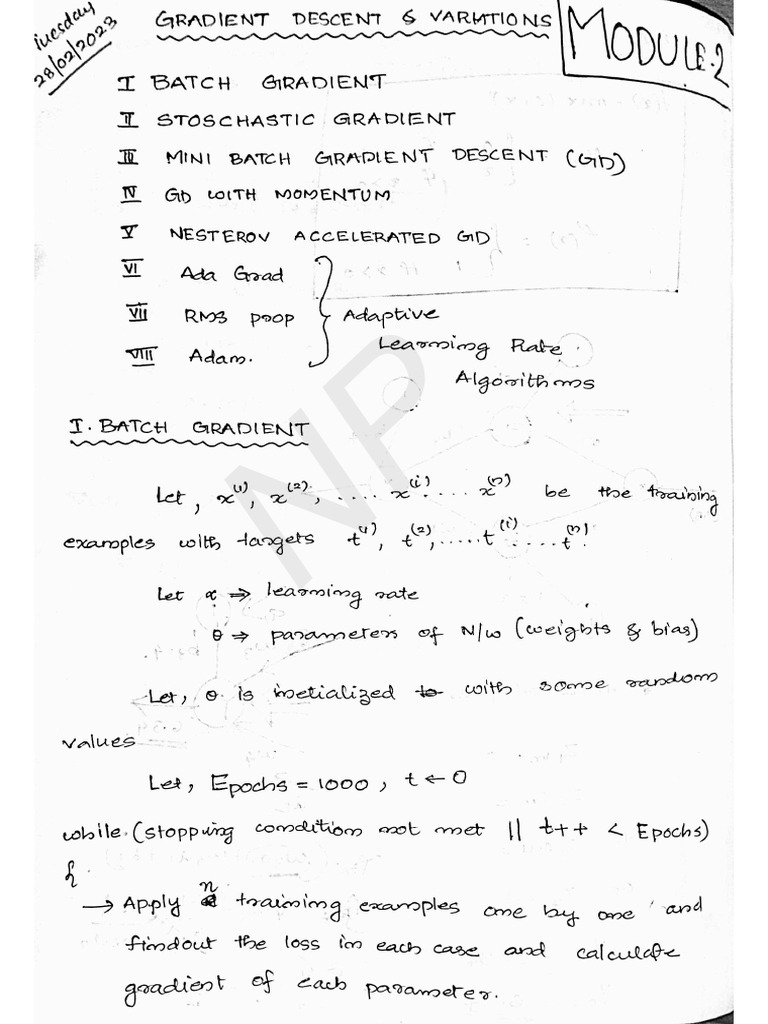 Tuesday
28/02/2023
GRADIENT DESCENT & VARIATIONS
MODULE-2
I BATCH GRADIENT
II STOSCHASTIC GRADIENT
III MINI BATCH GRADIENT DESCENT (GD)
IV GD WITH MOMENTUM
V NESTEROV ACCELERATED GD
VI Ada Grad
VII RMS prop } Adaptive
Learning Rate
VIII Adam.
Algorithms
I. BATCH GRADIENT
NP
Let, x^(1), x^(2), .... x^(i). .... x^(n) be the training
examples with targets t^(1), t^(2), ..... t^(i) ..... t^(n).
Let α ⇒ learning rate
θ ⇒ parameters of N/w (weights & bias)
Let, θ is inetialized to with some random
values
Let, Epochs = 1000, t ← 0
while (stopping condition not met || t++ < Epochs)
{
→ Apply n training examples one by one and
findout the loss in each case and calculate
gradient of each parameter.